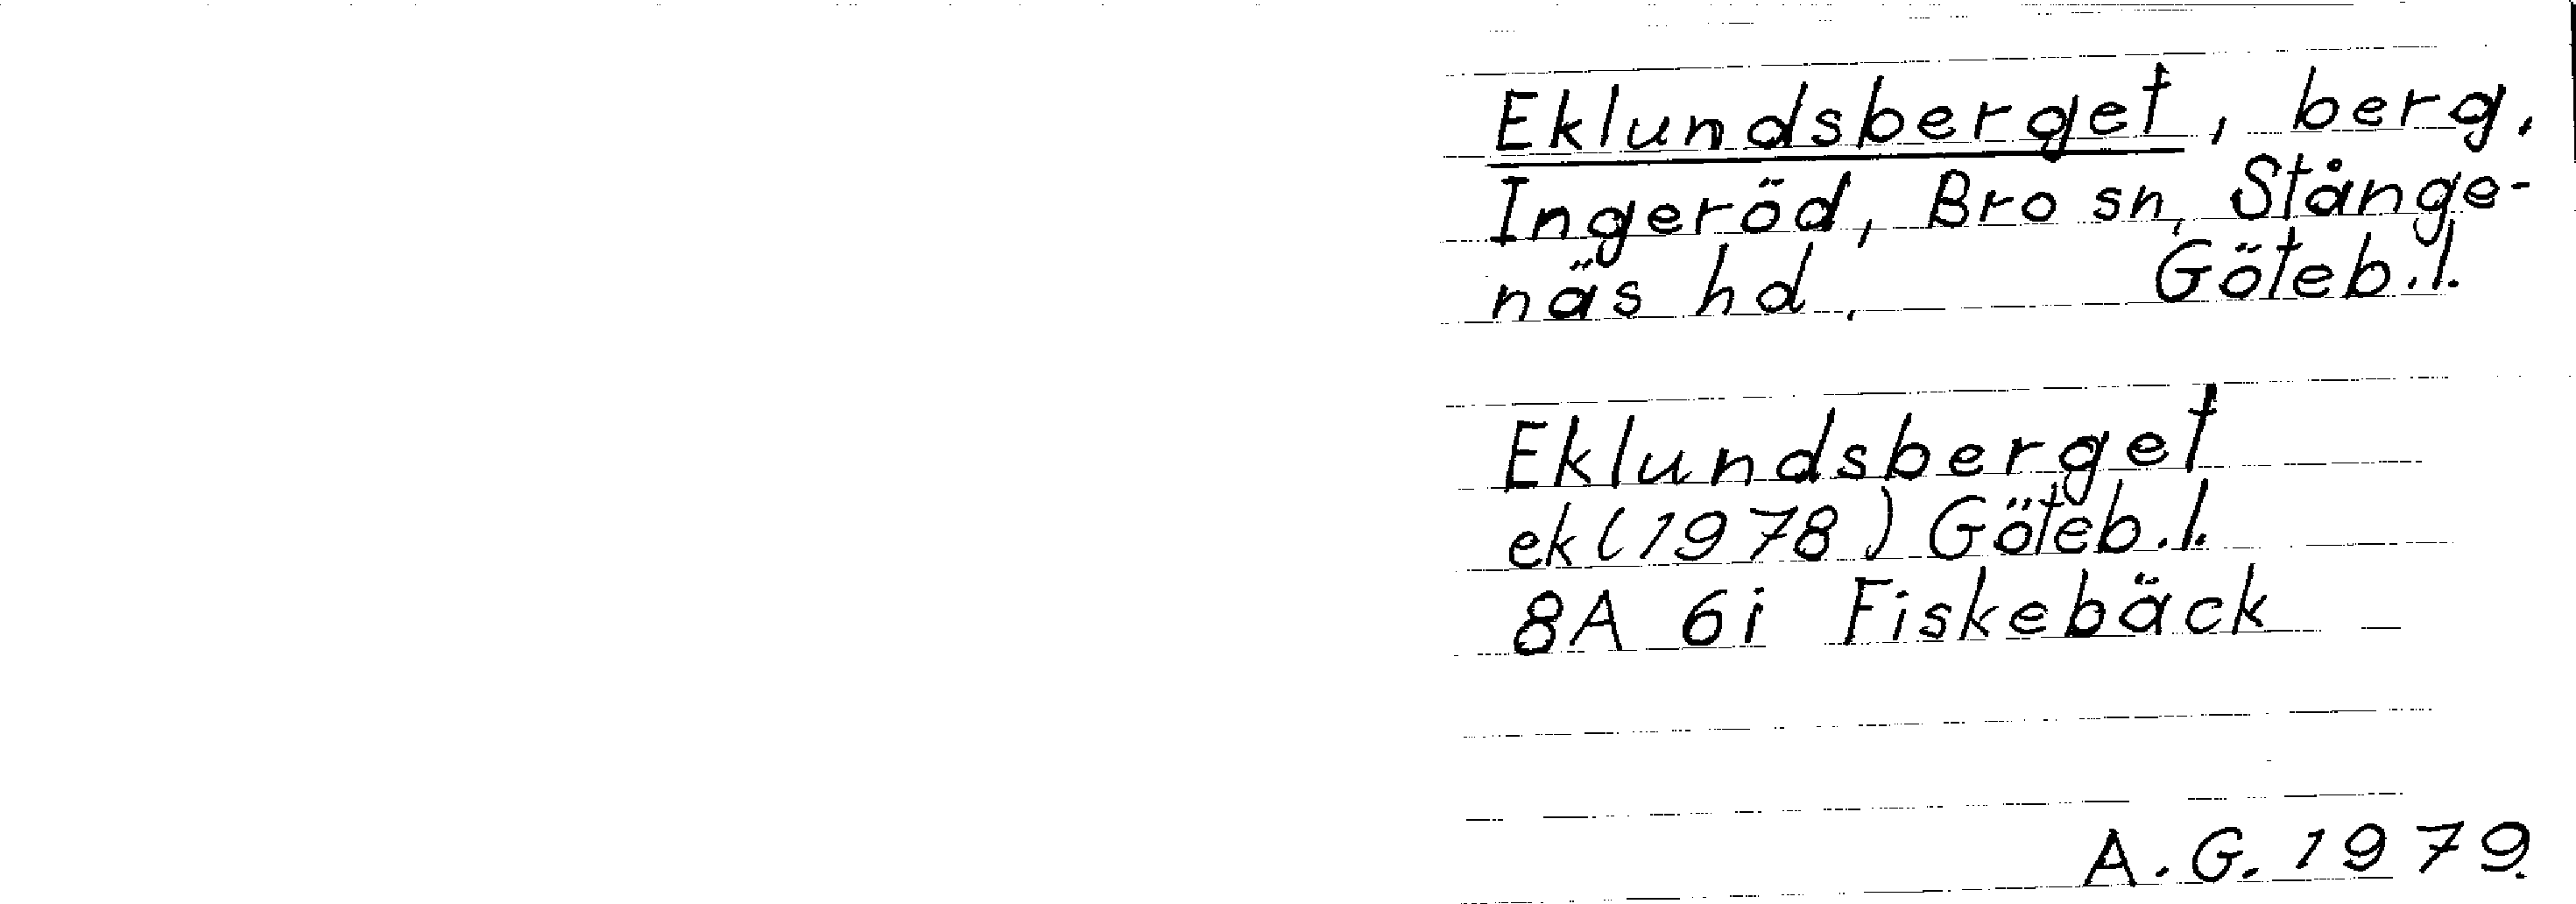 Eklundsberget, berg,
Ingeröd, Bro sn, Stånge-
näs hd. Göteb.l.
Eklundsberget
ek (1978) Göteb.l.
8A 6i Fiskebäck
A.G. 1979.